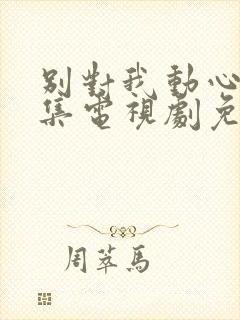 别對我動心
集電視劇免
周萃馬